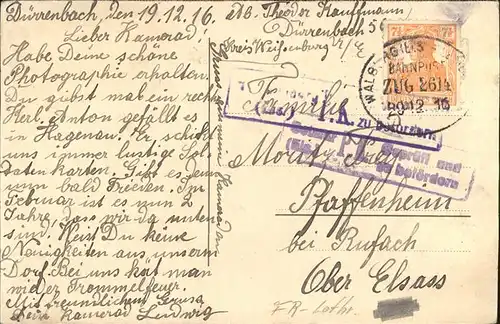 Dürrenbach, den 19.12.16.
Lieber Kamerad,
Habe Deine schöne
Photographie erhalten.
Du gibst mal ein recht
Herl. Anton gefällt es
in Hagenau. Er schickt
uns immer lustige Sol-
daten karten. Gibt es denn
nun bald Frieden. Im
Februar ist es nun 2
Jahre, dass wir da unten
sind. Weist Du keine
Neuigkeiten aus unserm
Dorf. Bei uns hört man
wieder Trommelfeuer.
Mit freundlichem Gruss
Dein Kamerad Ludwig
Abs. Theodor Kauffmann
Dürrenbach
Kreis Weissenburg i/E
WALBURG (ELS
BAHNPOST
ZUG 2614
20 12 16
Familie
P.K.
zu befördern
Moritz Frey
P.K.
Geprüft und
zu befördern
Pfaffenheim
bei Rufach
Ober Elsass
FR-Lothr.